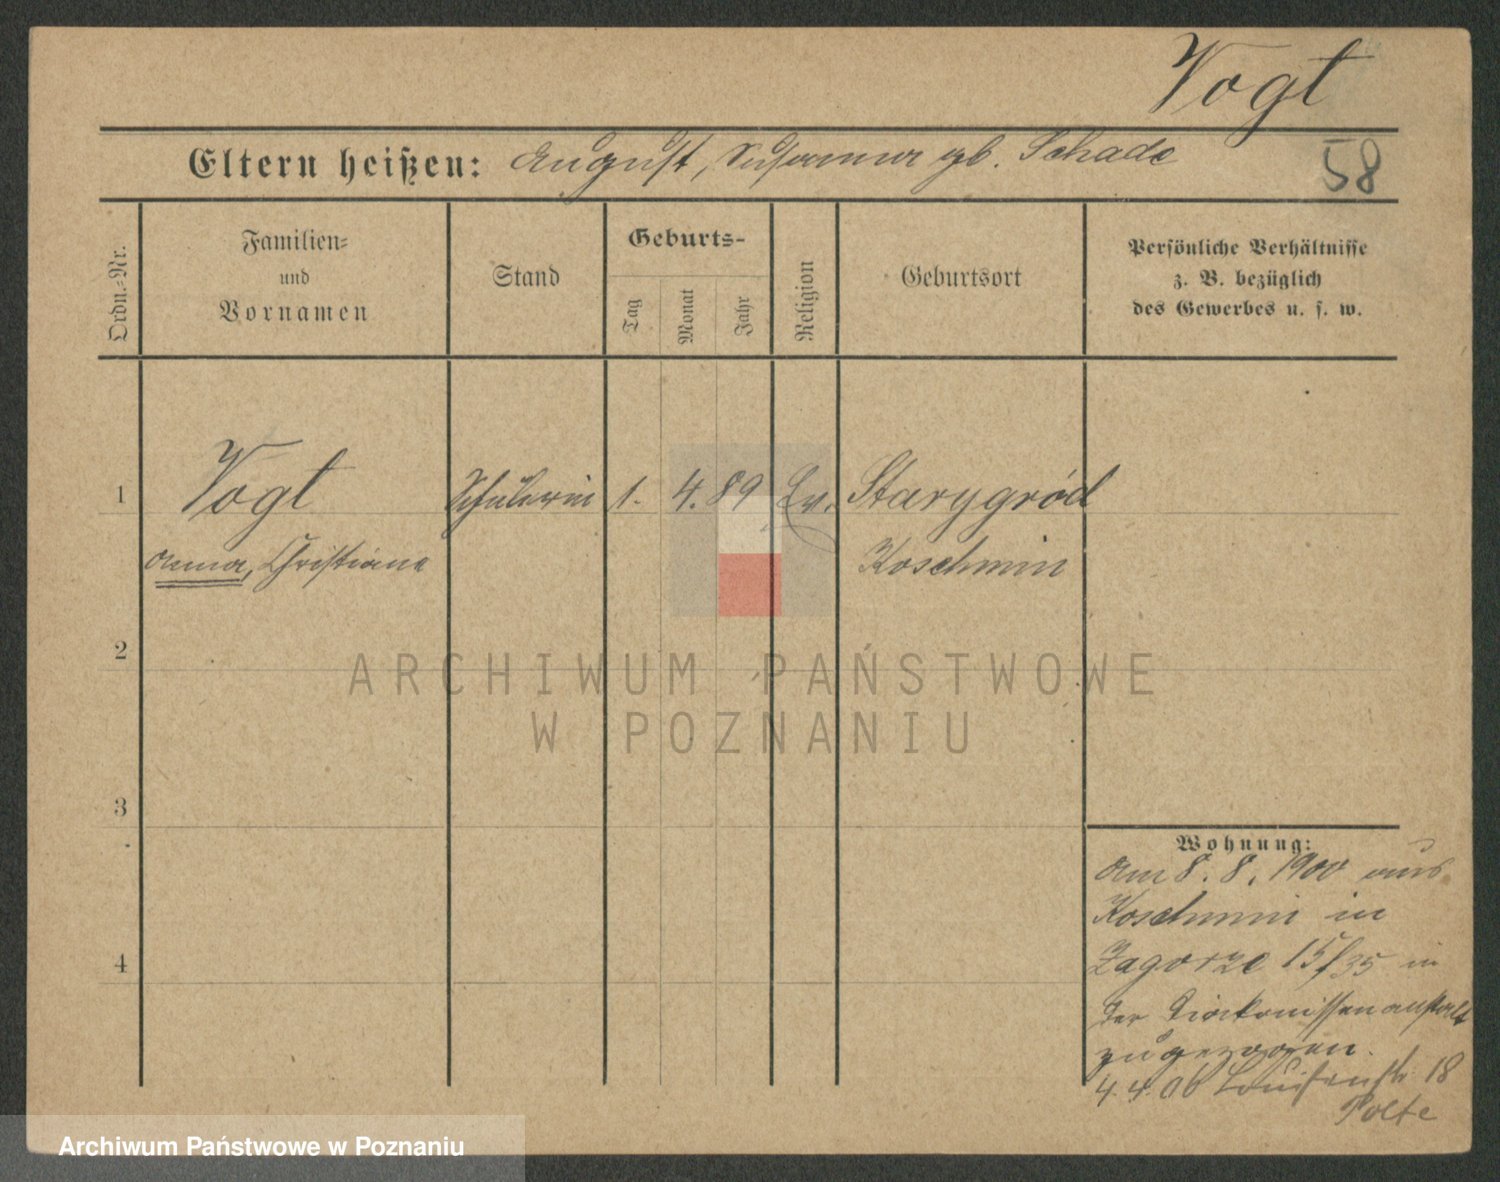 Vogt
Eltern heißen: August, Susanna gb. Schade
58
Ordn.-Nr.
Familien-
und
Vornamen
Stand
Geburts-
Tag
Monat
Jahr
Religion
Geburtsort
Persönliche Verhältnisse
z. B. bezüglich
des Gewerbes u. s. w.
1 Vogt Schülerin 1. 4. 89 Ev. Starygród
Anna, Christiane Koschmin
2
3
4
Wohnung:
Am 8. 8. 1900 aus
Koschmin in
Zagorze 15/35 in
der Diakonissenanstalt
zugezogen.
4. 4. 06 Louisenstr 18
Polte
ARCHIWUM PAŃSTWOWE
W POZNANIU
Archiwum Państwowe w Poznaniu